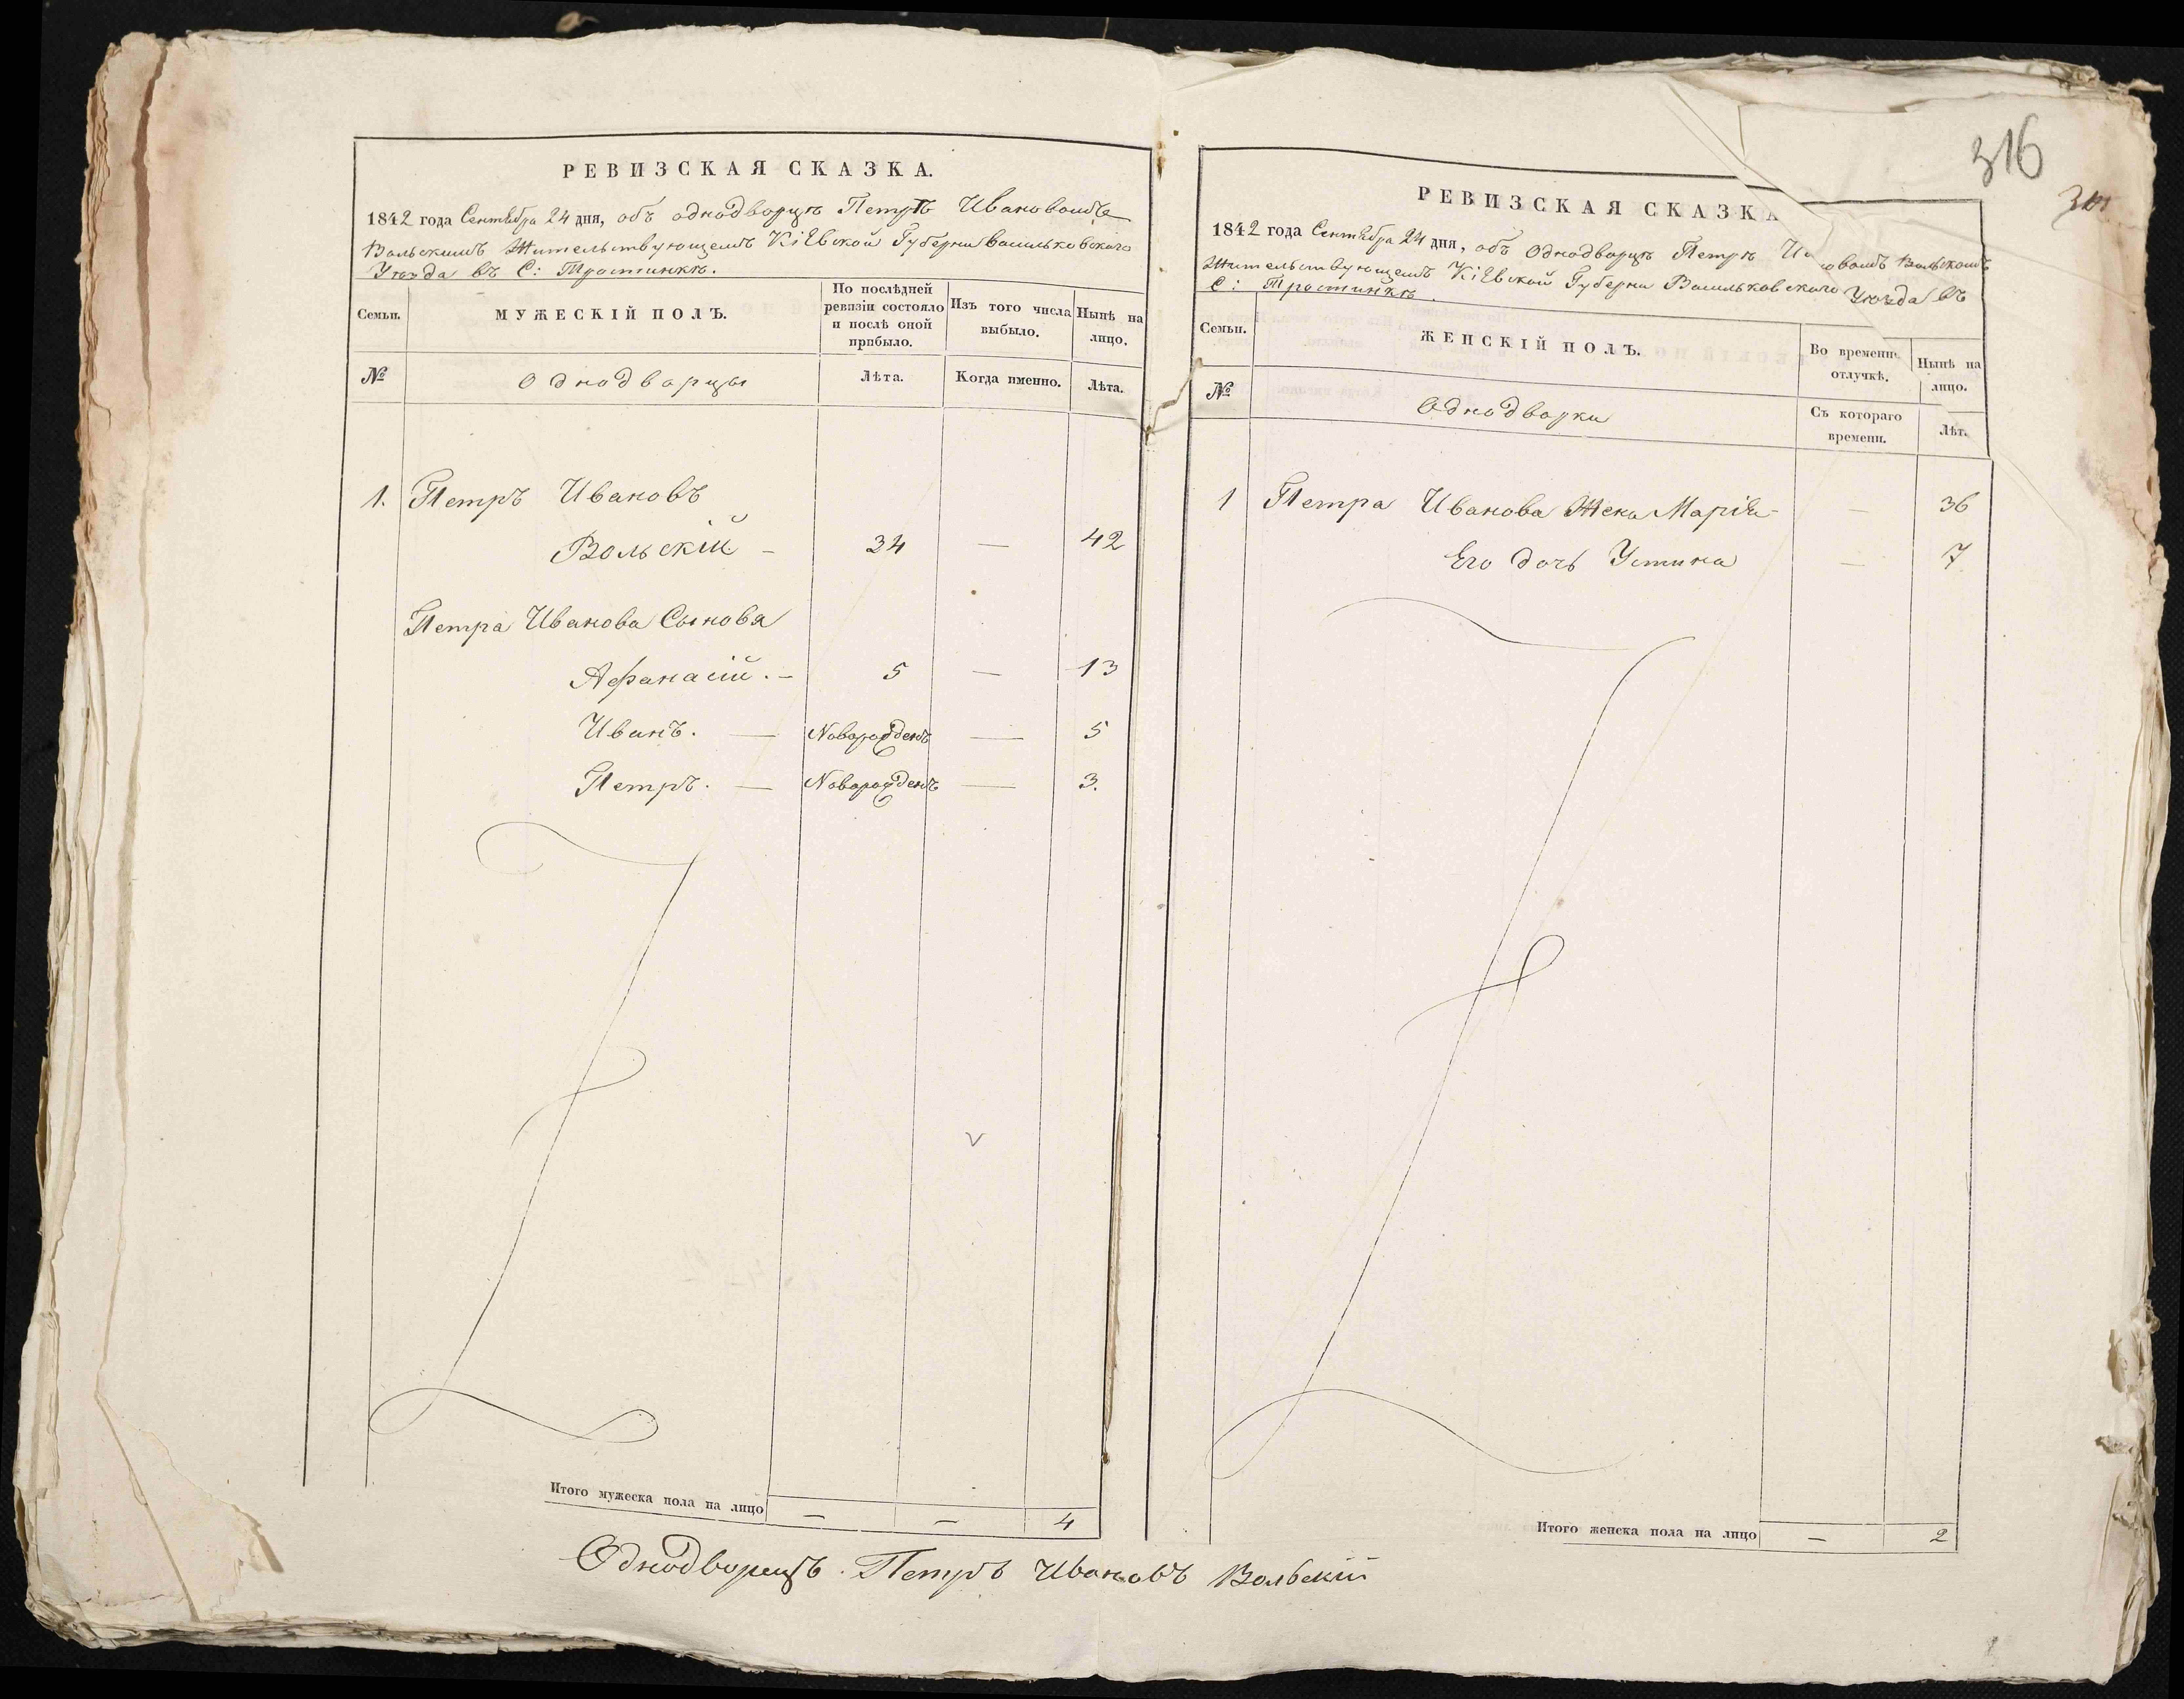 316
РЕВИЗСКАЯ СКАЗКА.
1842 года Сентября 24 дня, объ однодворцѣ Петрѣ Ивановомъ
Вольскимъ Жительствующемъ Кіевской Губерни Васильковского
Уѣзда въ С: Тростинкѣ.
Семьи.
МУЖЕСКІЙ ПОЛЪ.
По послѣдней
ревизіи состояло
и послѣ оной
прибыло.
Изъ того числа
выбыло.
Нынѣ на
лицо.
№
Однодворцы
Лѣта.
Когда именно.
Лѣта.
1. Петръ Ивановъ
Вольскій - 34 — 42
Петра Иванова Сыновя
Афанасій. - 5 — 13
Иванъ. — Новорожденъ — 5
Петръ. — Новорожденъ — 3.
Итого мужеска пола на лицо — — 4
РЕВИЗСКАЯ СКАЗКА
1842 года Сентября 24 дня, объ Однодворцѣ Петрѣ И овомъ Вольскомъ
Жительствующемъ Кіевской Губерни Васильковского Уѣзда въ
С: Тростинкѣ.
Семьи.
ЖЕНСКІЙ ПОЛЪ.
Во временн
отлучкѣ.
Нынѣ на
лицо.
№
Однодворки
Съ котораго
времени.
Лѣт
1 Петра Иванова Жена Марія — 36
Его дочь Устина — 7
Итого женска пола на лицо — 2
Однодворецъ Петръ Ивановъ Вольскій